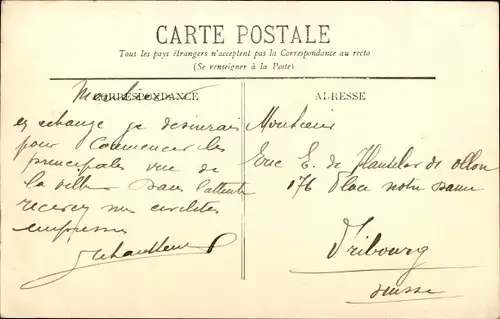 CARTE POSTALE
Tous les pays étrangers n'acceptent pas la Correspondance au recto
(Se renseigner à la Poste)
CORRESPONDANCE
ADRESSE
Monsieur
en échange je désirerais
pour commencer les
principales vue de
la ville dans l'attente
recevez mes civilités
empressées
Monsieur
E. de
176 Place notre Dame
Fribourg
Suisse